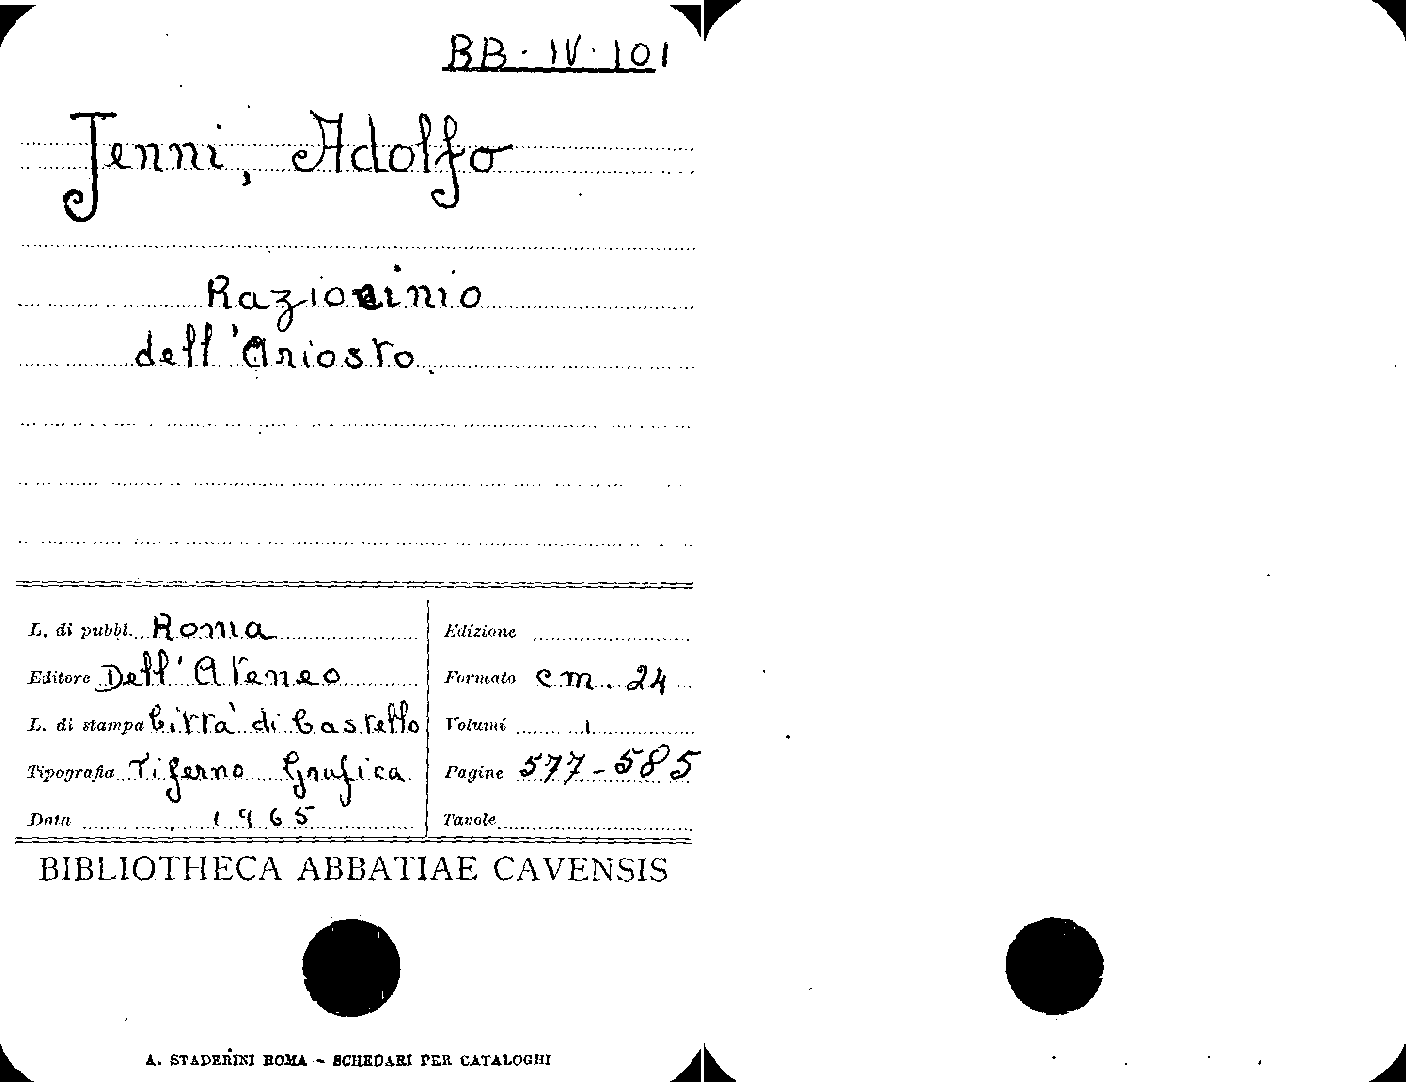 BB·IV·101
Jenni, Adolfo
Raziocinio
dell'Ariosto.
L. di pubbl. Roma
Edizione
Editore Dell'Ateneo
Formato cm. 24
L. di stampa Città di Castello
Volumi 1
Tipografia Tiferno Grafica
Pagine 577-585
Data 1965
Tavole
BIBLIOTHECA ABBATIAE CAVENSIS
A. STADERINI ROMA - SCHEDARI PER CATALOGHI